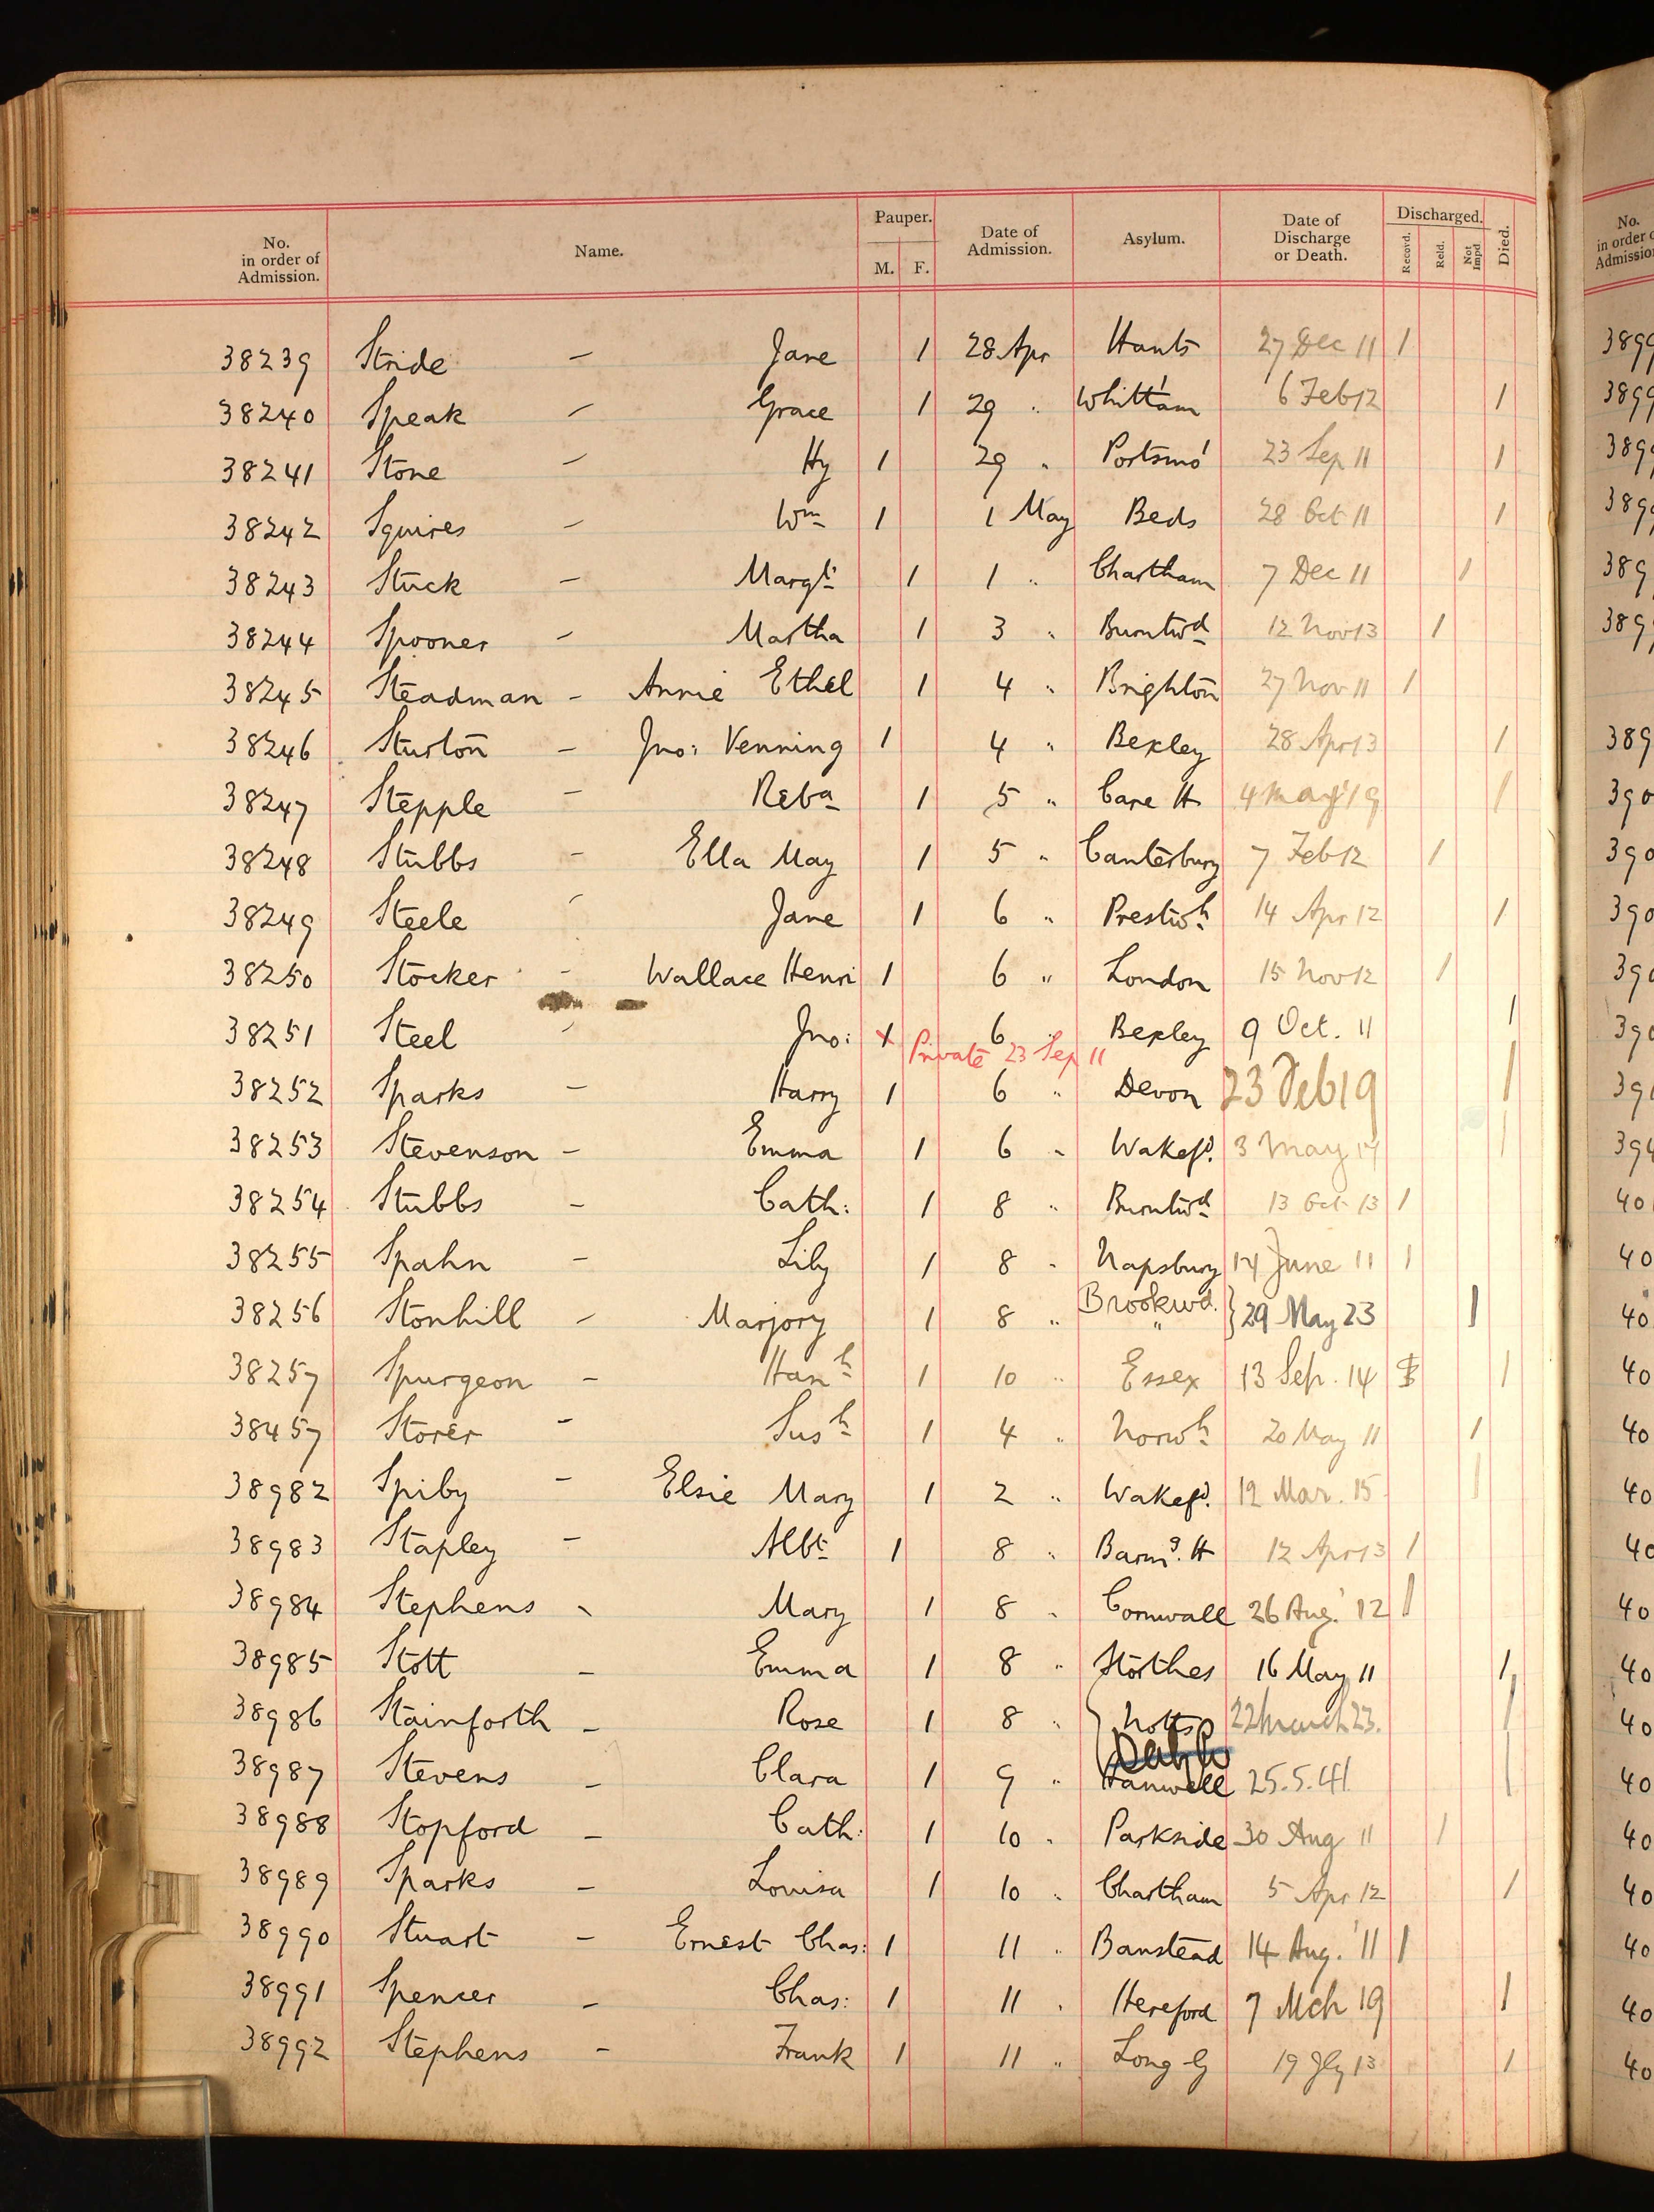 No. in order of Admission. Name. Pauper. M. F. Date of Admission. Asylum. Date of Discharge or Death. Discharged. Recovd. Reld. Not Impd. Died.
38239 Stride – Jane 1 28 Apr Hants 27 Dec 11 1
38240 Speak – Grace 1 29 " Whitt'am 6 Feb 12 1
38241 Stone – Hy 1 29 " Portsmo' 23 Sep 11 1
38242 Squires – Wm 1 1 May Beds 28 Oct 11 1
38243 Stuck – Margt 1 1 " Chartham 7 Dec 11 1
38244 Spooner – Martha 1 3 " Burntwd 12 Nov 13 1
38245 Steadman – Annie Ethel 1 4 " Brighton 27 Nov 11 1
38246 Sturton – Jno: Venning 1 4 " Bexley 28 Apr 13 1
38247 Stepple – Reba 1 5 " Cane H 4 May 19 1
38248 Stubbs – Ella May 1 5 " Canterbury 7 Feb 12 1
38249 Steele – Jane 1 6 " Prestwh 14 Apr 12 1
38250 Stocker – Wallace Henri 1 6 " London 15 Nov 12 1
38251 Steel – Jno: x 6 " Bexley 9 Oct. 11 1
Private 23 Sep 11
38252 Sparks – Harry 1 6 " Devon 23 Feb 19 1
38253 Stevenson – Emma 1 6 " Wakefd. 3 May 14 1
38254 Stubbs – Cath: 1 8 " Burntwd 13 Oct 13 1
38255 Spahn – Lily 1 8 " Napsbury 14 June 11 1
Brookwd.
38256 Stonhill – Marjory 1 8 " " } 29 May 23 1
38257 Spurgeon – Hanh 1 10 " Essex 13 Sep. 14 1
38457 Storer – Sush 1 4 " Norwh 20 May 11 1
38982 Spiby – Elsie Mary 1 2 " Wakefd. 12 Mar. 15 1
38983 Stapley – Albt 1 8 " Barmg. H 12 Apr 13 1
38984 Stephens – Mary 1 8 " Cornwall 26 Aug. '12 1
38985 Stott – Emma 1 8 " Storthes 16 May 11 1
38986 Stainforth – Rose 1 8 " Notts 22 March 23. 1
38987 Stevens – Clara 1 9 " Hanwell 25.5.41 1
38988 Stopford – Cath: 1 10 " Parkside 30 Aug 11 1
38989 Sparks – Louisa 1 10 " Chartham 5 Apr 12 1
38990 Stuart – Ernest Chas: 1 11 " Banstead 14 Aug. '11 1
38991 Spencer – Chas: 1 11 " Hereford 7 Mch 19 1
38992 Stephens – Frank 1 11 " Long G 19 Jly 13 1